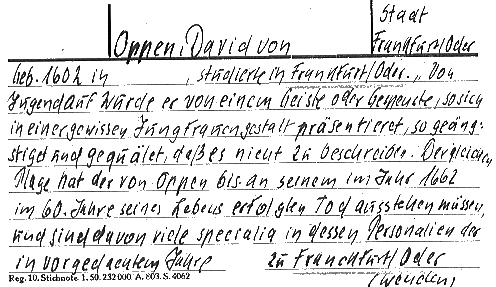 Stadt
Oppen, David von Frankfurt/Oder
geb. 1602 in , studierte in Frankfurt/Oder. „Von
Jugend auf wurde er von einem Geiste oder Gespenste, so sich
in einer gewissen Jungfrauengestalt präsentieret, so geäng-
stiget und gequälet, daß es nicht zu beschreiben. Dergleichen
Plage hat der von Oppen bis an seinem im Jahr 1662
im 60. Jahre seines Lebens erfolgten Tod ausstehen müssen,
und sind davon viele specialia in dessen Personalien der
in vorgedachtem Jahre zu Franckfurt/Oder
Reg. 10. Stichnote. 1. 50. 232 000. A. 803. S. 4062
(wenden)